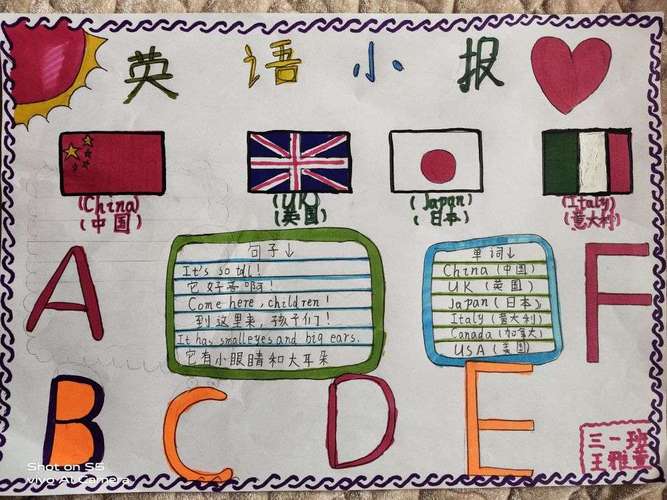 英语小报
(China)
(中国)
(UK)
(英国)
(Japan)
(日本)
(Italy)
(意大利)
A
句子↓
It's so tall!
它好高啊!
Come here, children!
到这里来,孩子们!
It has small eyes and big ears.
它有小眼睛和大耳朵
单词↓
China (中国)
UK (英国)
Japan (日本)
Italy (意大利)
Canada (加拿大)
USA (美国)
F
B
C
D
E
三一班
王雅萱
Shot on S5
vivo AI Camera